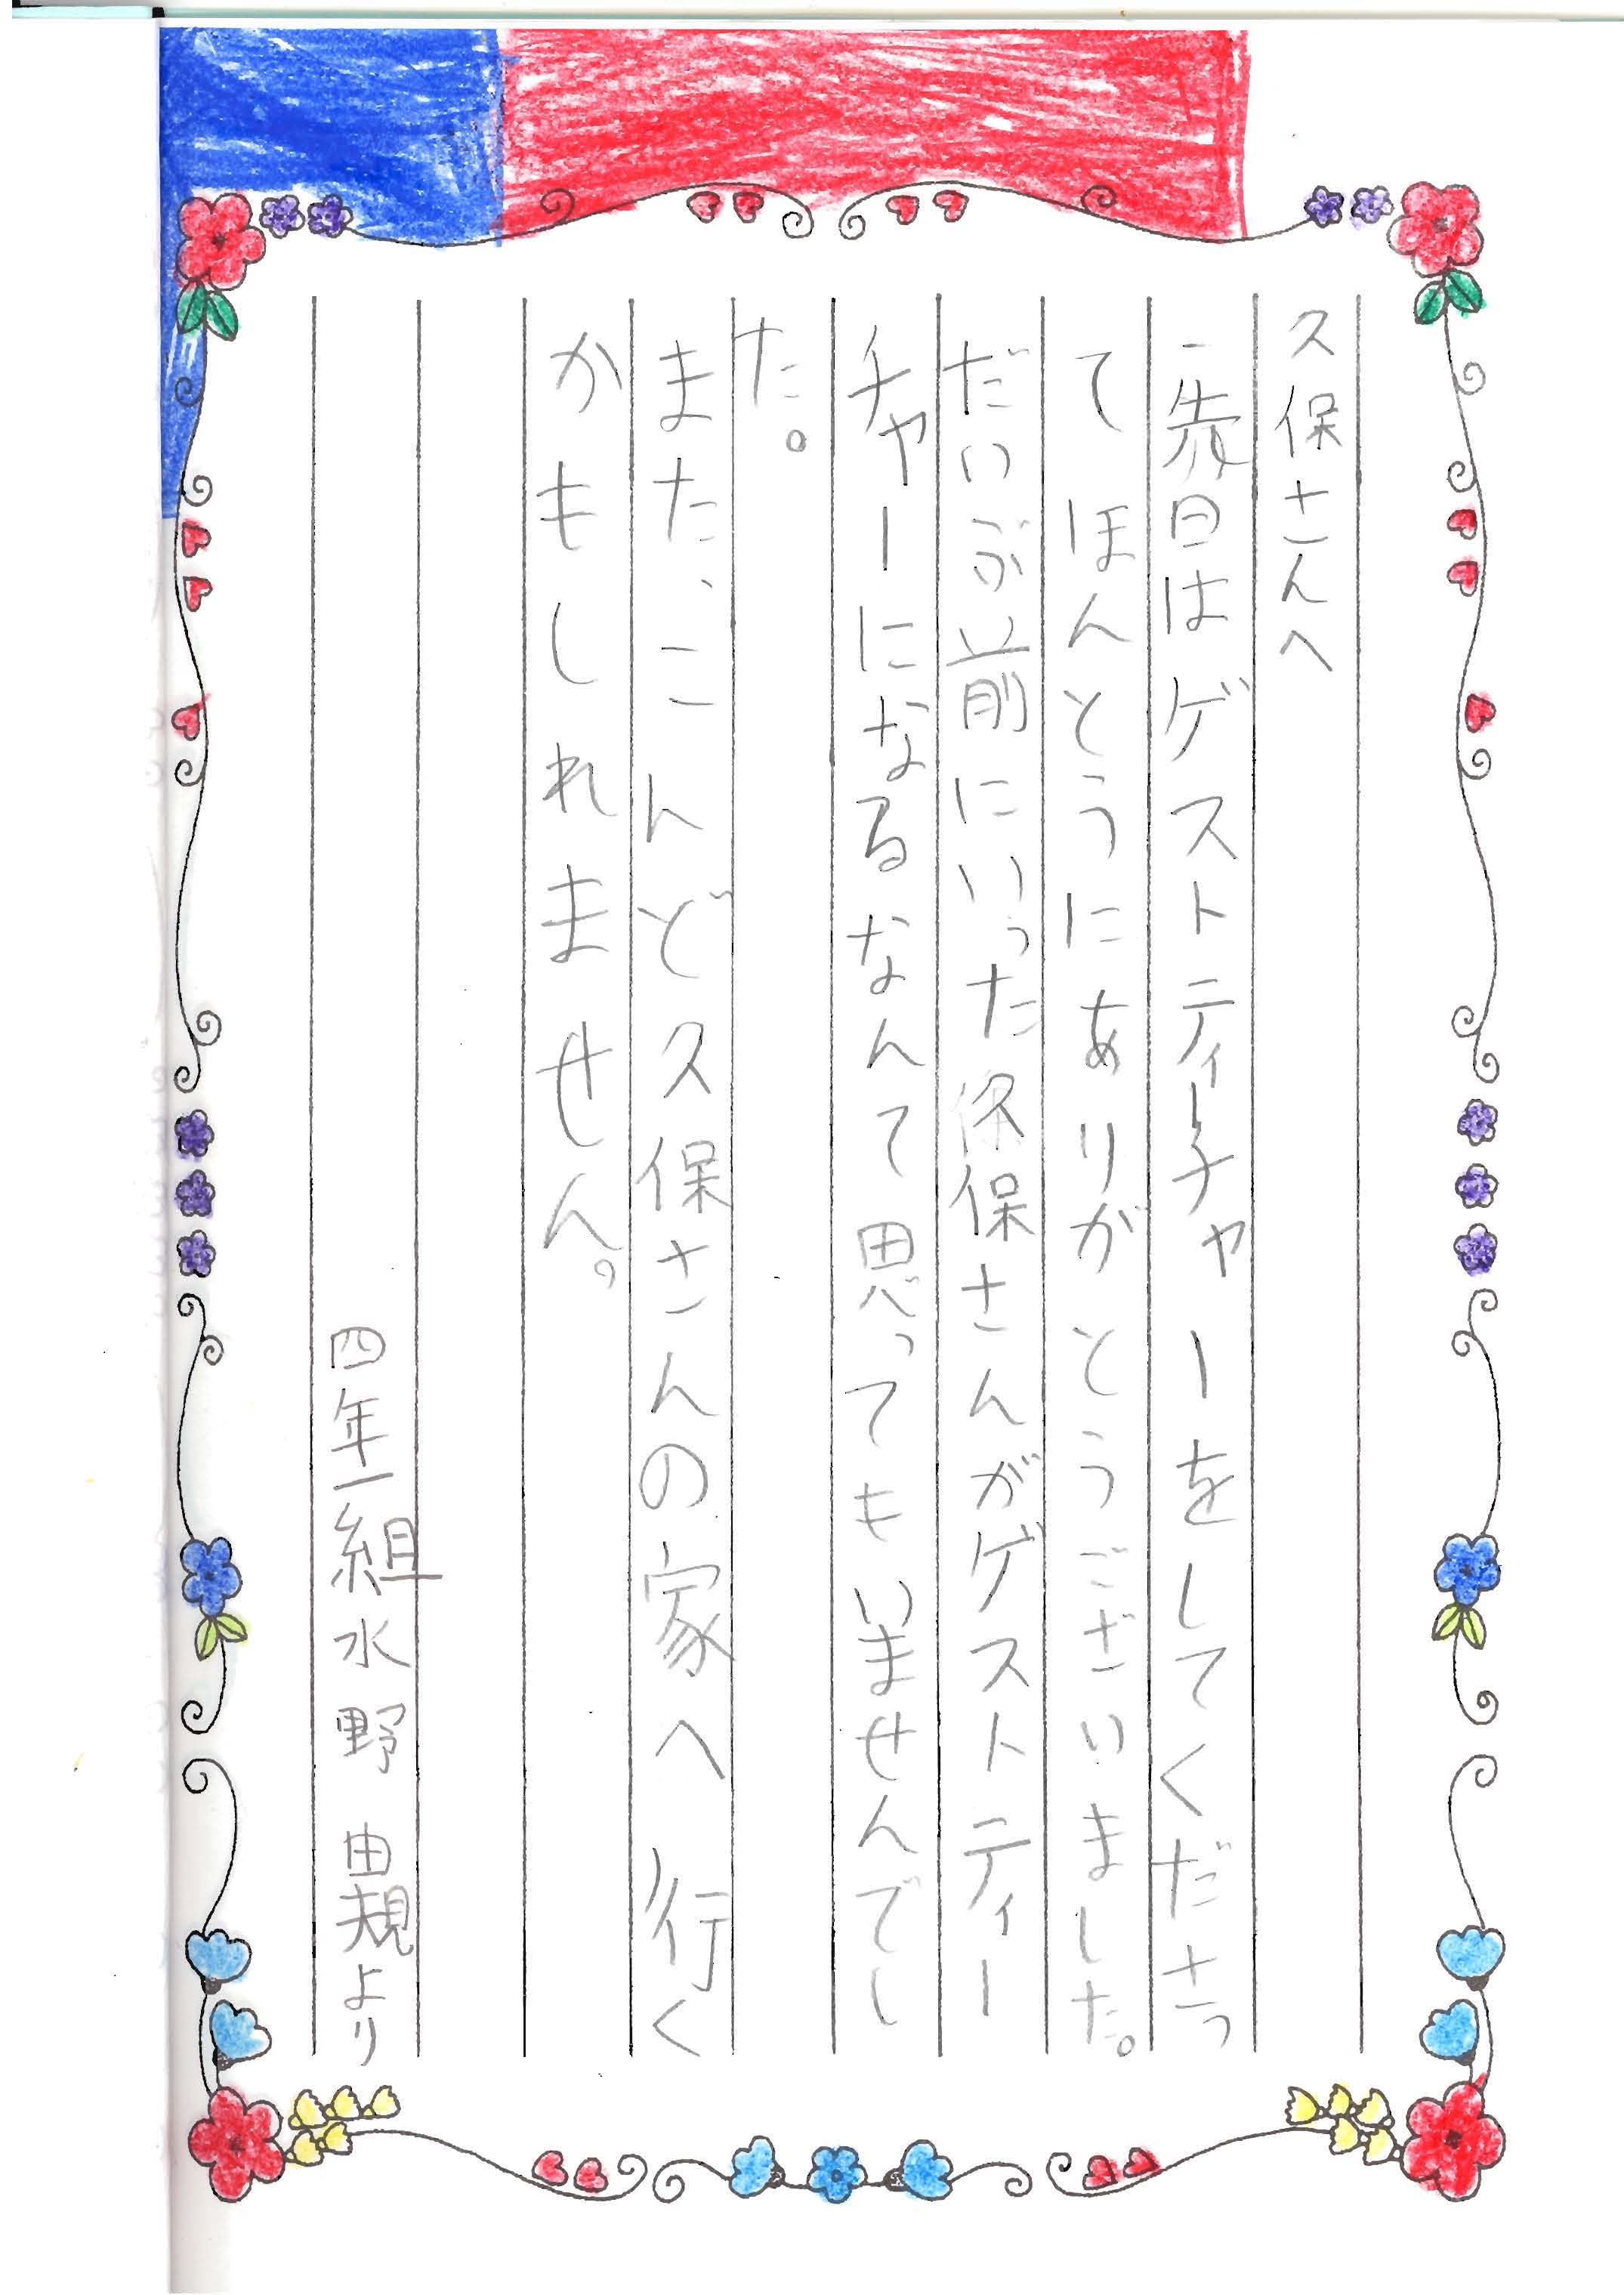 久保さんへ
先日はゲストティーチャーをしてくださっ
てほんとうにありがとうございました。
だいぶ前にいった久保さんがゲストティー
チャーになるなんて思ってもいませんでし
た。
また、こんど久保さんの家へ行く
かもしれません。
四年一組水野由規より